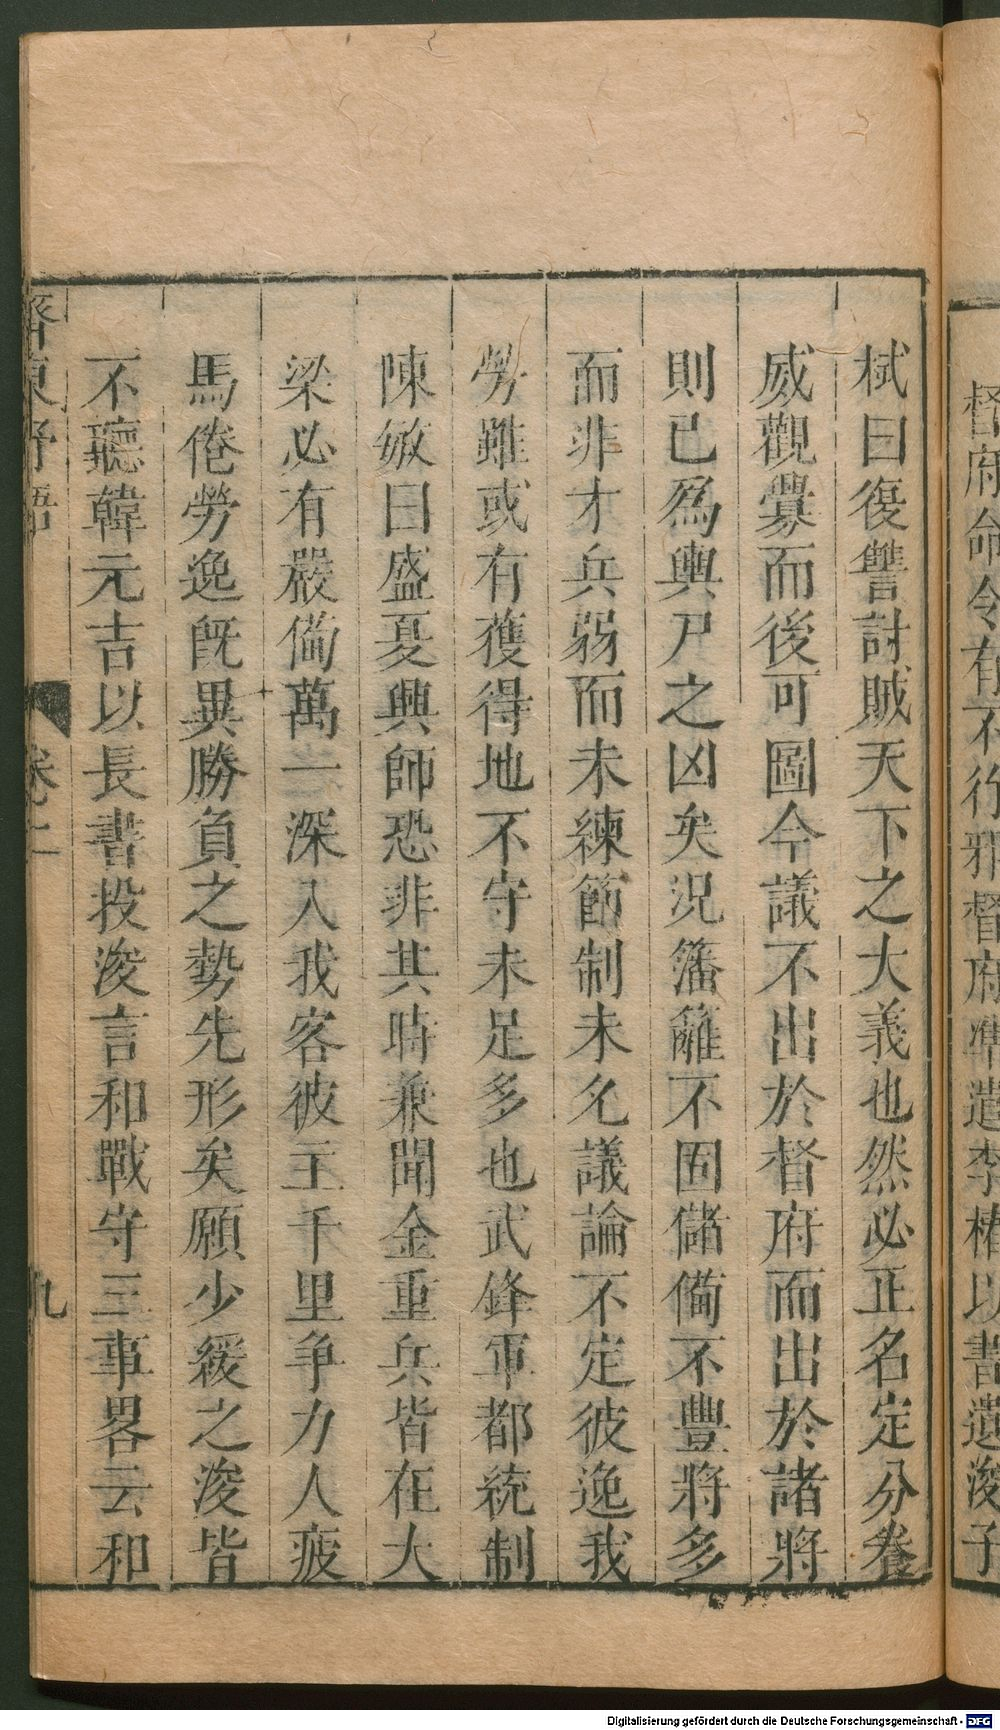 督府命令有不行邪督府準遣李椿以書遺浚子
栻曰復讐討賊天下之大義也然必正名定分養
威觀釁而後可圖今議不出於督府而出於諸將
則已爲輿尸之凶矣況藩籬不固儲偹不豐將多
而非才兵弱而未練節制未允議論不定彼逸我
勞雖或有獲得地不守未足多也武鋒軍都統制
陳敏曰盛夏興師恐非其時兼聞金重兵皆在大
梁必有嚴偹萬一深入我客彼主千里爭力人疲
馬倦勞逸旣異勝負之勢先形矣願少緩之浚皆
不聽韓元吉以長書投浚言和戰守三事畧云和
齊東野語
卷二
九
Digitalisierung gefördert durch die Deutsche Forschungsgemeinschaft - DFG